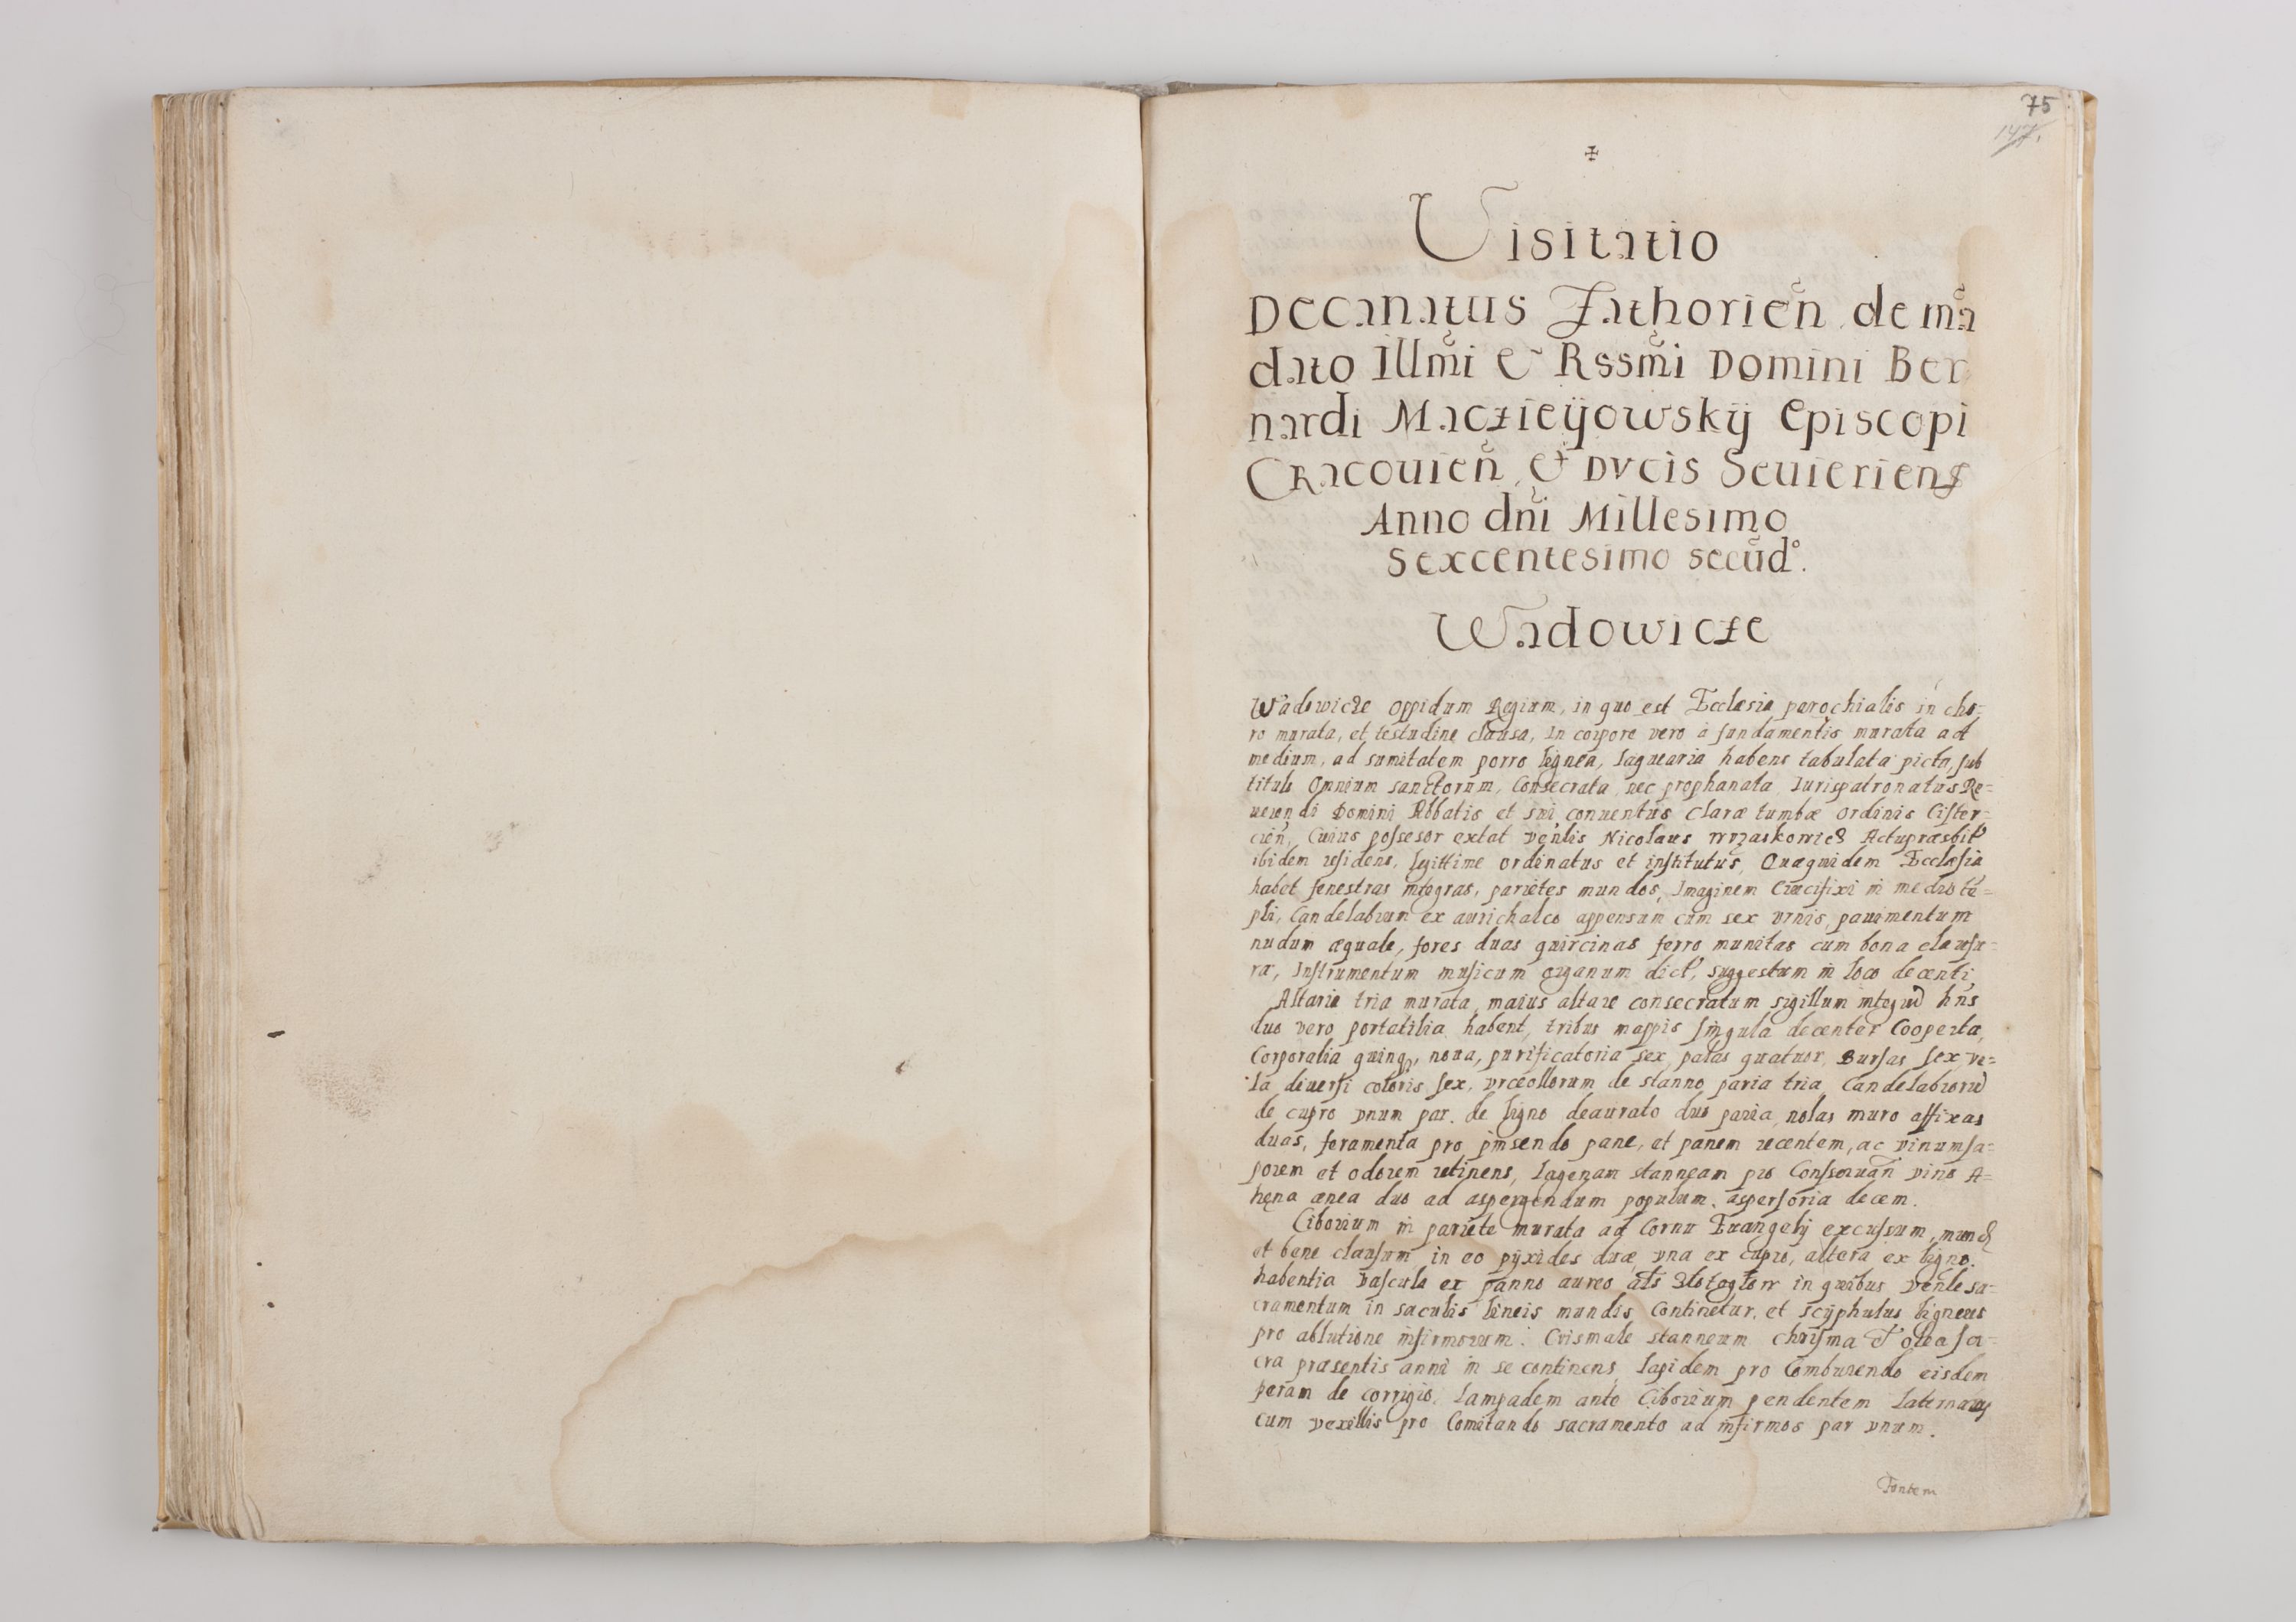 75
147.
✠
Visitatio
Decanatus Zathorien̄ de mā
dato Illm̄i & Rssm̄i Domini Ber
nardi Maczieyowskÿ Episcopi
Cracouien̄ & Dvcis Seuieriens
Anno dn̄i Millesimo
Sexcentesimo secūd°.
Wadowicze
Wadowicze oppidum Regium, in quo est Ecclesia parochialis in cho-
ro murata, et testudine clausa, in corpore vero à fundamentis murata ad
medium, ad sumitatem porro lignea, laquearia habens tabulata picta, sub
titulo Omnium sanctorum, Consecrata, nec prophanata, Iurispatronatus Re-
uerendi Domini Abbatis et sui conuentus Claræ tumbæ ordinis Cister-
cien̄, Cuius possesor extat ven̄lis Nicolaus Actupræsbit'
ibidem residens, legittime ordinatus et institutus, Quæquidem Ecclesia
habet fenestras integras, parietes mundos, Imaginem Crucifixi in medio tē-
pli, Candelabrum ex aurichalco appensum cum sex vrnis, pauimentum
nudum æquale, fores duas quircinas ferro munitas cum bona clausu-
ra, Instrumentum musicum organum dict', suggestum in loco decenti,
Altaria tria murata, maius altare consecratum sigillum integrū hn̄s
duo vero portatilia habent, tribus mappis singula decenter Cooperta,
Corporalia quinq3, noua, purificatoria sex, palas quatuor, Bursas sex, ve-
la diuersi coloris sex, vrceollorum de stanno paria tria, Candelabrorū
de cupro vnum par. de ligno deaurato duo paria, nolas muro affixas
duas, feramenta pro pinsendo pane, et panem recentem, ac vinum sa-
porem et odorem retinens, lagenam stanneam pro Conseruan̄ vino A-
hena ænea duo ad aspergendum populum. aspersoria decem.
Ciborium in pariete murata ad Cornu Euangelÿ excussum,
et bene clausum in eo pÿxides duæ, vna ex cupro, altera ex ligno.
habentia vascula ex panno aureo als Slotogłow in quibus ven̄le sa-
cramentum in saculis lineis mundis Continetur, et scÿphulus ligneus
pro ablutione infirmorum. Crismale stanneum chrisma & olea sa-
cra præsentis anni in se continens, lapidem pro Comburendo eisdem
peram de corrigio, lampadem ante Ciborium pendentem
cum vexillis pro Comitando sacramento ad infirmos par vnum.
Fontem